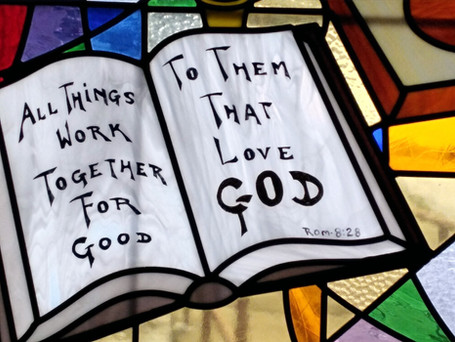 All Things
Work
Together
For
Good
To Them
That
Love
GOD
Rom-8:28